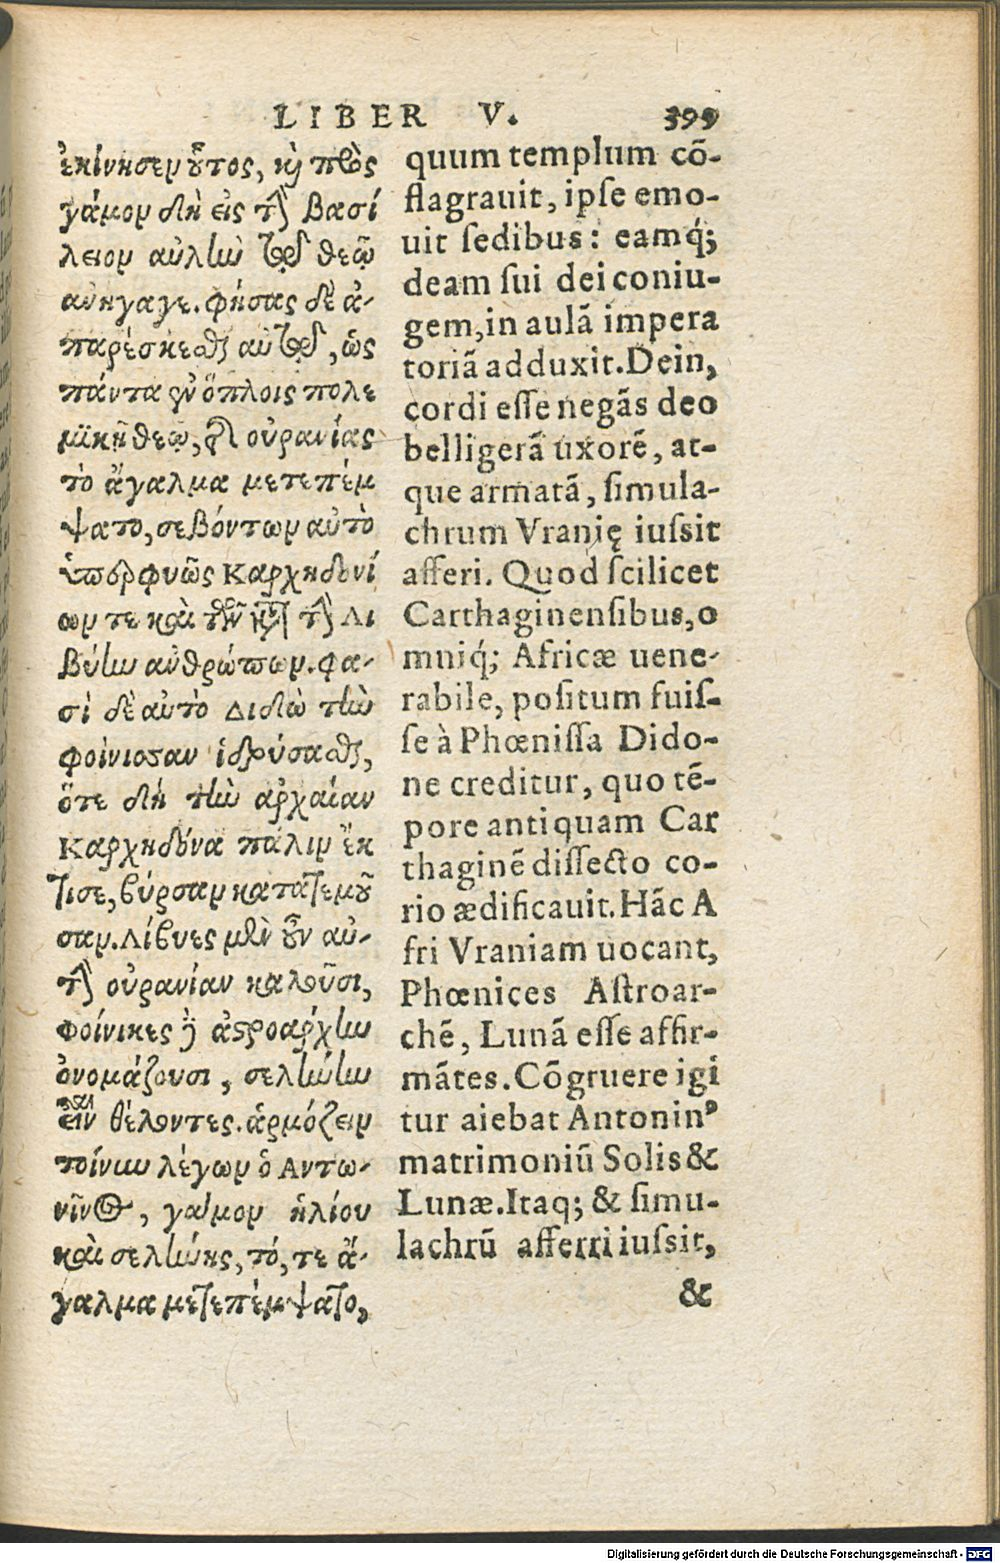 LIBER V. 399
ἐκίνησεν οὗτος, καὶ πρὸς
γάμον δὴ εἰς τὴν βασί
λειον αὐλὴν τῷ θεῷ
ἀνήγαγε. φήσας δὲ ἀ-
παρέσκεσθαι αὐτῷ, ὡς
πάντα ἐν ὅπλοις πολε
μικῇ θεῷ, τῆς οὐρανίας
τὸ ἄγαλμα μετεπέμ
ψατο, σεβόντων αὐτὸ
ὑπερφυῶς Καρχηδονί
ων τε καὶ τῶν κατὰ τὴν Λι
βύην ἀνθρώπων. φα-
σὶ δὲ αὐτὸ Διδὼ τὴν
φοίνισσαν ἱδρύσασθαι,
ὅτε δὴ τὴν ἀρχαίαν
Καρχηδόνα πάλιν ἔκ
τισε, βύρσαν κατατεμοῦ
σαν. Λίβυες μὲν οὖν αὐ-
τὴν οὐρανίαν καλοῦσι,
Φοίνικες δὲ ἀστροάρχην
ὀνομάζουσι, σελήνην
εἶναι θέλοντες. ἁρμόζειν
τοίνυν λέγων ὁ Αντω-
νῖνος, γάμον ἡλίου
καὶ σελήνης, τό, τε ἄ-
γαλμα μετεπέμψατο,
quum templum cō-
flagrauit, ipſe emo-
uit ſedibus: eamq́;
deam ſui dei coniu-
gem, in aulā impera
toriā adduxit. Dein,
cordi eſſe negās deo
belligerā uxorē, at-
que armatā, ſimula-
chrum Vranię iuſsit
afferi. Quod ſcilicet
Carthaginenſibus, o
mniq́; Africæ uene-
rabile, poſitum fuiſ-
ſe à Phœniſſa Dido-
ne creditur, quo tē-
pore antiquam Car
thaginē diſſecto co-
rio ædificauit. Hāc A
fri Vraniam uocant,
Phœnices Aſtroar-
chē, Lunā eſſe affir-
mātes. Cōgruere igi
tur aiebat Antoninꝰ
matrimoniū Solis &
Lunæ. Itaq; & ſimu-
lachrū afferri iuſsit,
&
Digitalisierung gefördert durch die Deutsche Forschungsgemeinschaft - DFG